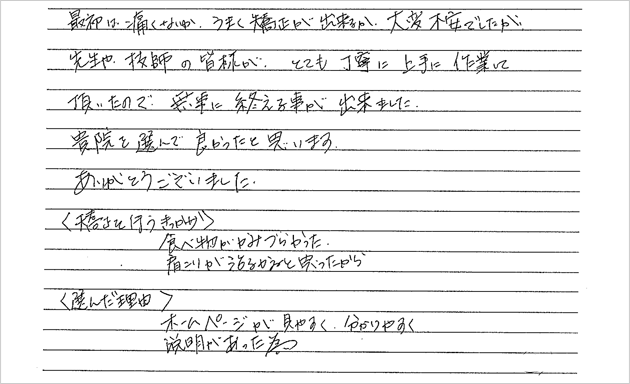 最初は痛くないか、うまく矯正が出来るか、大変不安でしたが、
先生や技師の皆様が、とても丁寧に上手に作業して
頂いたので、無事に終える事が出来ました。
貴院を選んで良かったと思います。
ありがとうございました。
〈矯正を行うきっかけ〉
食べ物がかみづらかった。
肩こりが治るかなと思ったから
〈選んだ理由〉
ホームページが見やすく、分かりやすく
説明があった為